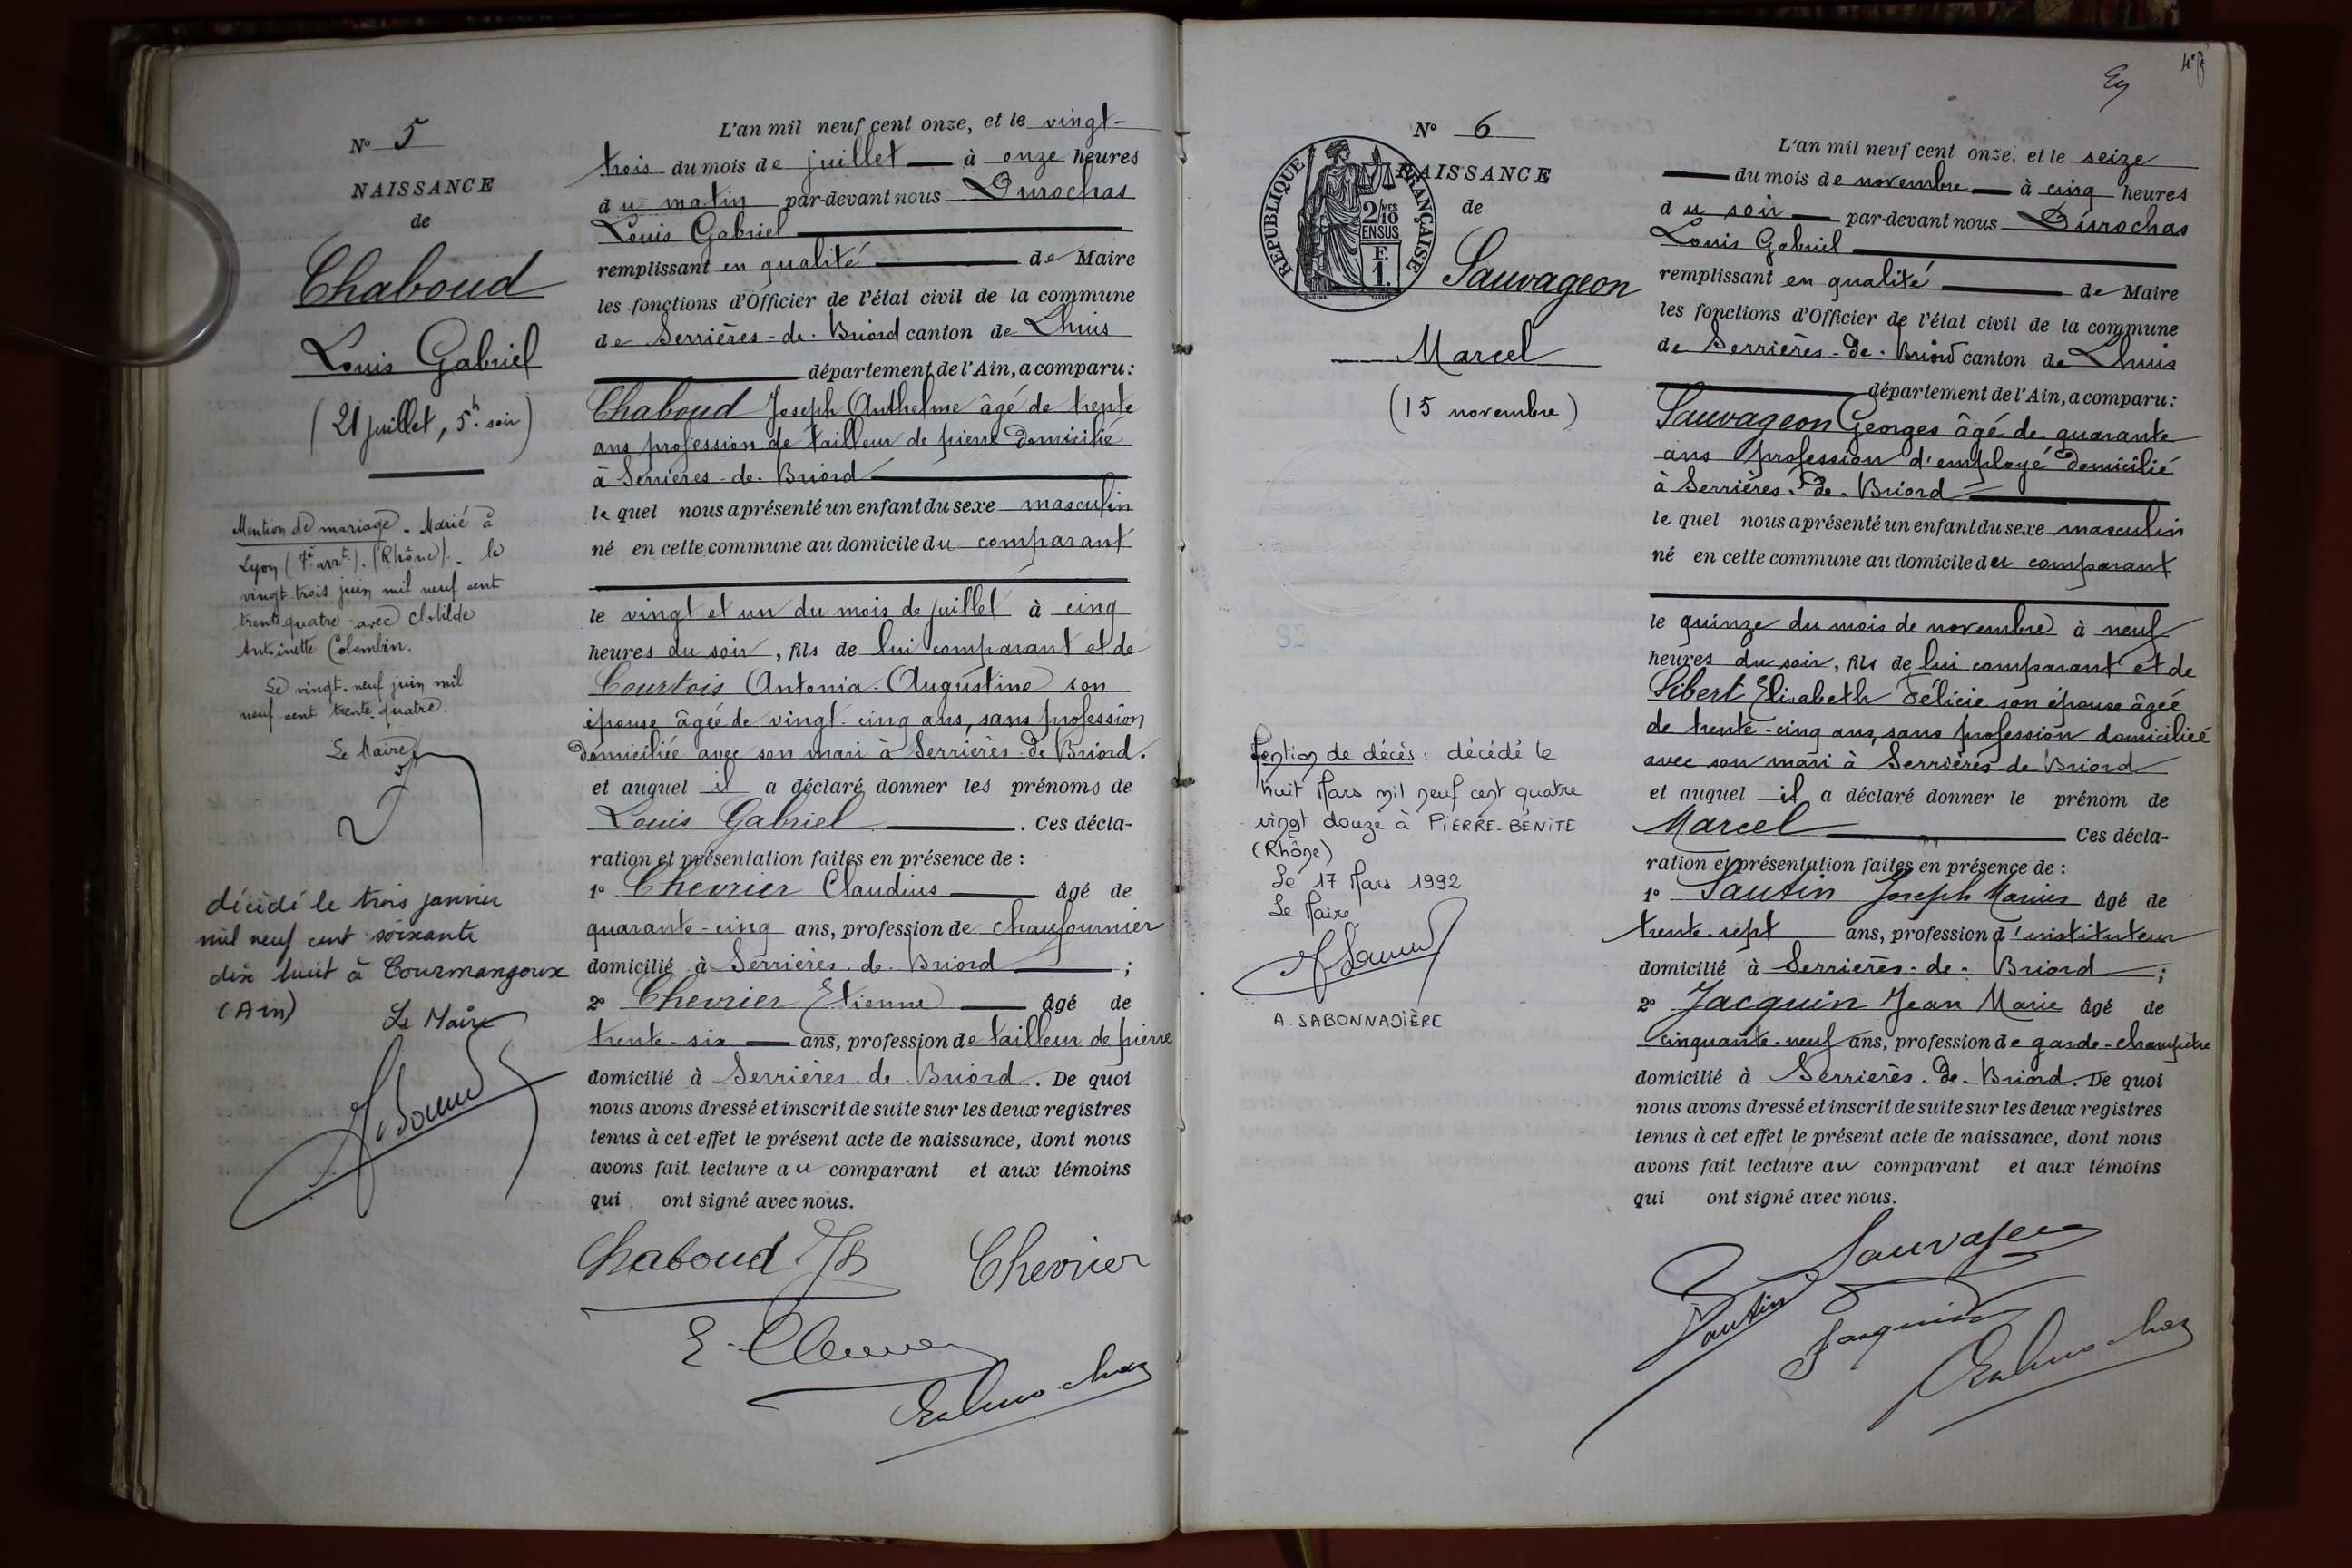 N° 5
NAISSANCE
de
Chaboud
Louis Gabriel
(21 juillet, 5h. soir)
Mention de mariage. Marié à
Lyon (7e arrt). (Rhône). le
vingt-trois juin mil neuf cent
trente quatre avec Clotilde
Antoinette Colombin.
Le vingt-neuf juin mil
neuf cent trente-quatre.
Le Maire
décédé le trois janvier
mil neuf cent soixante
dix huit à Courmangoux
(Ain)
Le Maire
L'an mil neuf cent onze, et le vingt-
trois du mois de juillet à onze heures
du matin par-devant nous Durochas
Louis Gabriel
remplissant en qualité de Maire
les fonctions d'Officier de l'état civil de la commune
de Serrières-de-Briord canton de Lhuis
département de l'Ain, a comparu:
Chaboud Joseph Anthelme âgé de trente
ans profession de tailleur de pierre domicilié
à Serrières-de-Briord
lequel nous a présenté un enfant du sexe masculin
né en cette commune au domicile du comparant
le vingt et un du mois de juillet à cinq
heures du soir, fils de lui comparant et de
Courtois Antonia-Augustine son
épouse âgée de vingt-cinq ans, sans profession
domiciliée avec son mari à Serrières-de-Briord.
et auquel il a déclaré donner les prénoms de
Louis Gabriel. Ces décla-
ration et présentation faites en présence de :
1° Chevrier Claudius âgé de
quarante-cinq ans, profession de chaufournier
domicilié à Serrières-de-Briord ;
2° Chevrier Etienne âgé de
trente-six ans, profession de tailleur de pierre
domicilié à Serrières-de-Briord. De quoi
nous avons dressé et inscrit de suite sur les deux registres
tenus à cet effet le présent acte de naissance, dont nous
avons fait lecture au comparant et aux témoins
qui ont signé avec nous.
Chaboud Chevrier
4e
N° 6
NAISSANCE
de
RÉPUBLIQUE FRANÇAISE
2/10 MES
EN SUS
F.
1.
Sauvageon
Marcel
(15 novembre)
Mention de décès : décédé le
huit Mars mil neuf cent quatre
vingt douze à PIERRE-BÉNITE
(Rhône)
Le 17 Mars 1992
Le Maire
A. SABONNADIÈRE
L'an mil neuf cent onze, et le seize
du mois de novembre à cinq heures
du soir par-devant nous Durochas
Louis Gabriel
remplissant en qualité de Maire
les fonctions d'Officier de l'état civil de la commune
de Serrières-de-Briord canton de Lhuis
département de l'Ain, a comparu:
Sauvageon Georges âgé de quarante
ans profession d'employé domicilié
à Serrières-de-Briord
lequel nous a présenté un enfant du sexe masculin
né en cette commune au domicile du comparant
le quinze du mois de novembre à neuf
heures du soir, fils de lui comparant et de
Sibert Elisabeth Félicie son épouse âgée
de trente-cinq ans, sans profession domiciliée
avec son mari à Serrières-de-Briord
et auquel il a déclaré donner le prénom de
Marcel Ces décla-
ration et présentation faites en présence de :
1° Sautin Joseph Marius âgé de
trente-sept ans, profession d'instituteur
domicilié à Serrières-de-Briord ;
2° Jacquin Jean Marie âgé de
cinquante-neuf ans, profession de garde-champêtre
domicilié à Serrières-de-Briord. De quoi
nous avons dressé et inscrit de suite sur les deux registres
tenus à cet effet le présent acte de naissance, dont nous
avons fait lecture au comparant et aux témoins
qui ont signé avec nous.
Sauvageon
Sautin
Jacquin